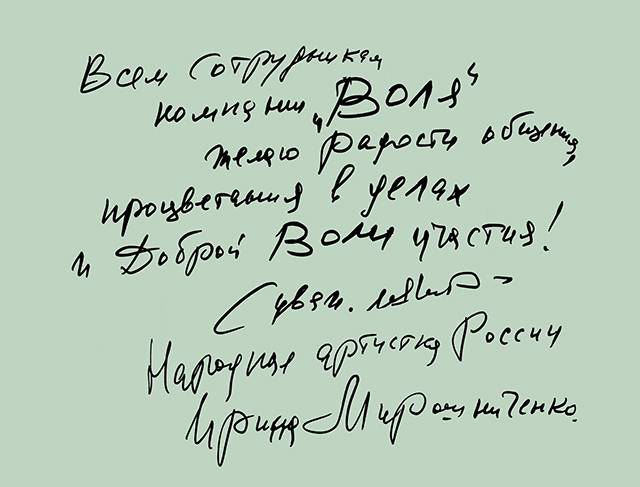 Всем сотрудникам
компании „Воля“
желаю радости общения,
процветания в делах
и Доброй Воли участия!
С уваж.
Народная артистка России
Ирина Мирошниченко